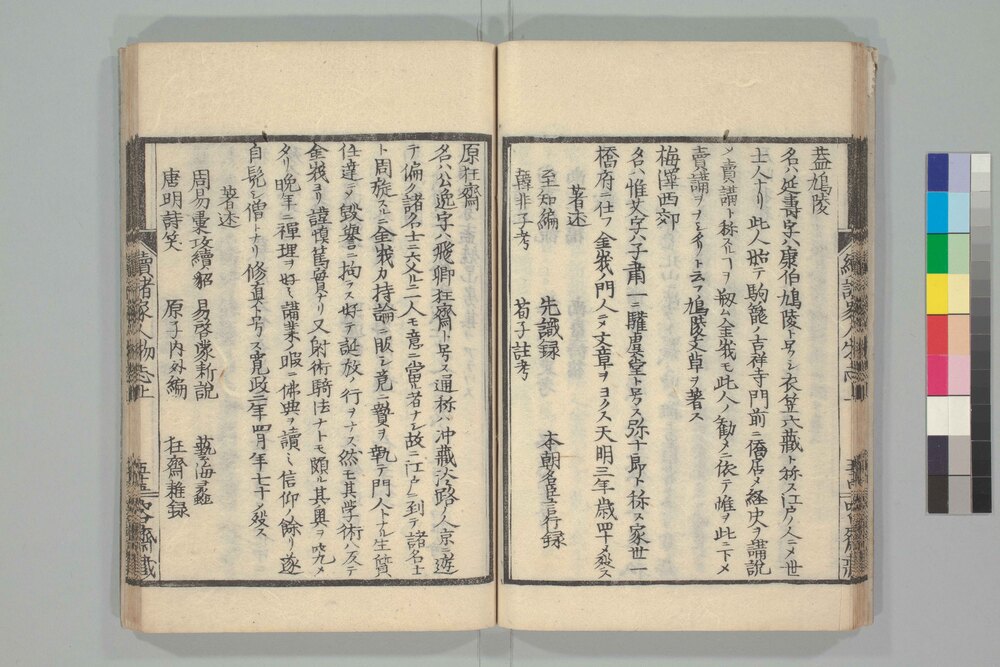 蓋鳩陵
名ハ延壽字ハ康伯鳩陵ト号シ衣笠六藏ト称ス江戸ノ人ニメ世
士人ナリ此人始テ駒籠ノ吉祥寺門前ニ僑居メ経史ヲ講説
メ賣講ト称スルヿヲ剏ム金峩モ此人ノ勧メニ依テ帷ヲ此ニ下メ
賣講ヲナシタリト云フ鳩陵文草ヲ著ス
梅澤西郊
名ハ惟文字ハ子肅一ニ騶虞堂ト号ス弥十郎ト称ス家世一
橋府ニ仕フ金峩ノ門人ニメ文章ヲヨクス天明三年歳四十メ殁ス
著述
至知編 先識録 本朝名臣言行録
韓非子考 荀子註考
原狂齋
名ハ公逸字ハ飛卿狂齋ト号ス通称ハ沖藏淡路ノ人京ニ遊
テ偏ク諸名士ニ六フルニ一人モ意ニ當ル者ナシ故ニ江戸ニ到テ諸名士
ト周旋スルニ金峩カ持論ニ服シ竟ニ贄ヲ執テ門人トナル生質
任達ニテ毀譽ニ拘ラス好テ誕放ノ行ヲナス然モ其学術ハ反テ
金峩ヨリ謹慎篤實ナリ又射術騎法ナトモ頗ル其奥ヲ究メ
タリ晩年ニ禪理ヲ好ミ講業ノ暇ニ佛典ヲ讀ミ信仰ノ餘リ遂
自髡シ僧トナリ修真ト号ス寛政二年四月年七十ノ殁ス
著述
周易彙攷續貂 易啓蒙新説 藝海蠡
唐明詩笑 原子内外編 狂齋雜録
續諸家人物志上